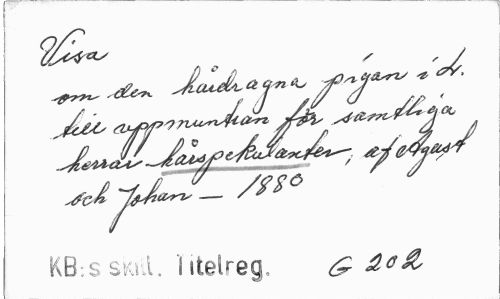 Visa
om den hårdragna pigan i L.
till uppmuntran för samtliga
herrar hårspekulanter, af August
och Johan — 1880
KB:s skill. Titelreg. G 202